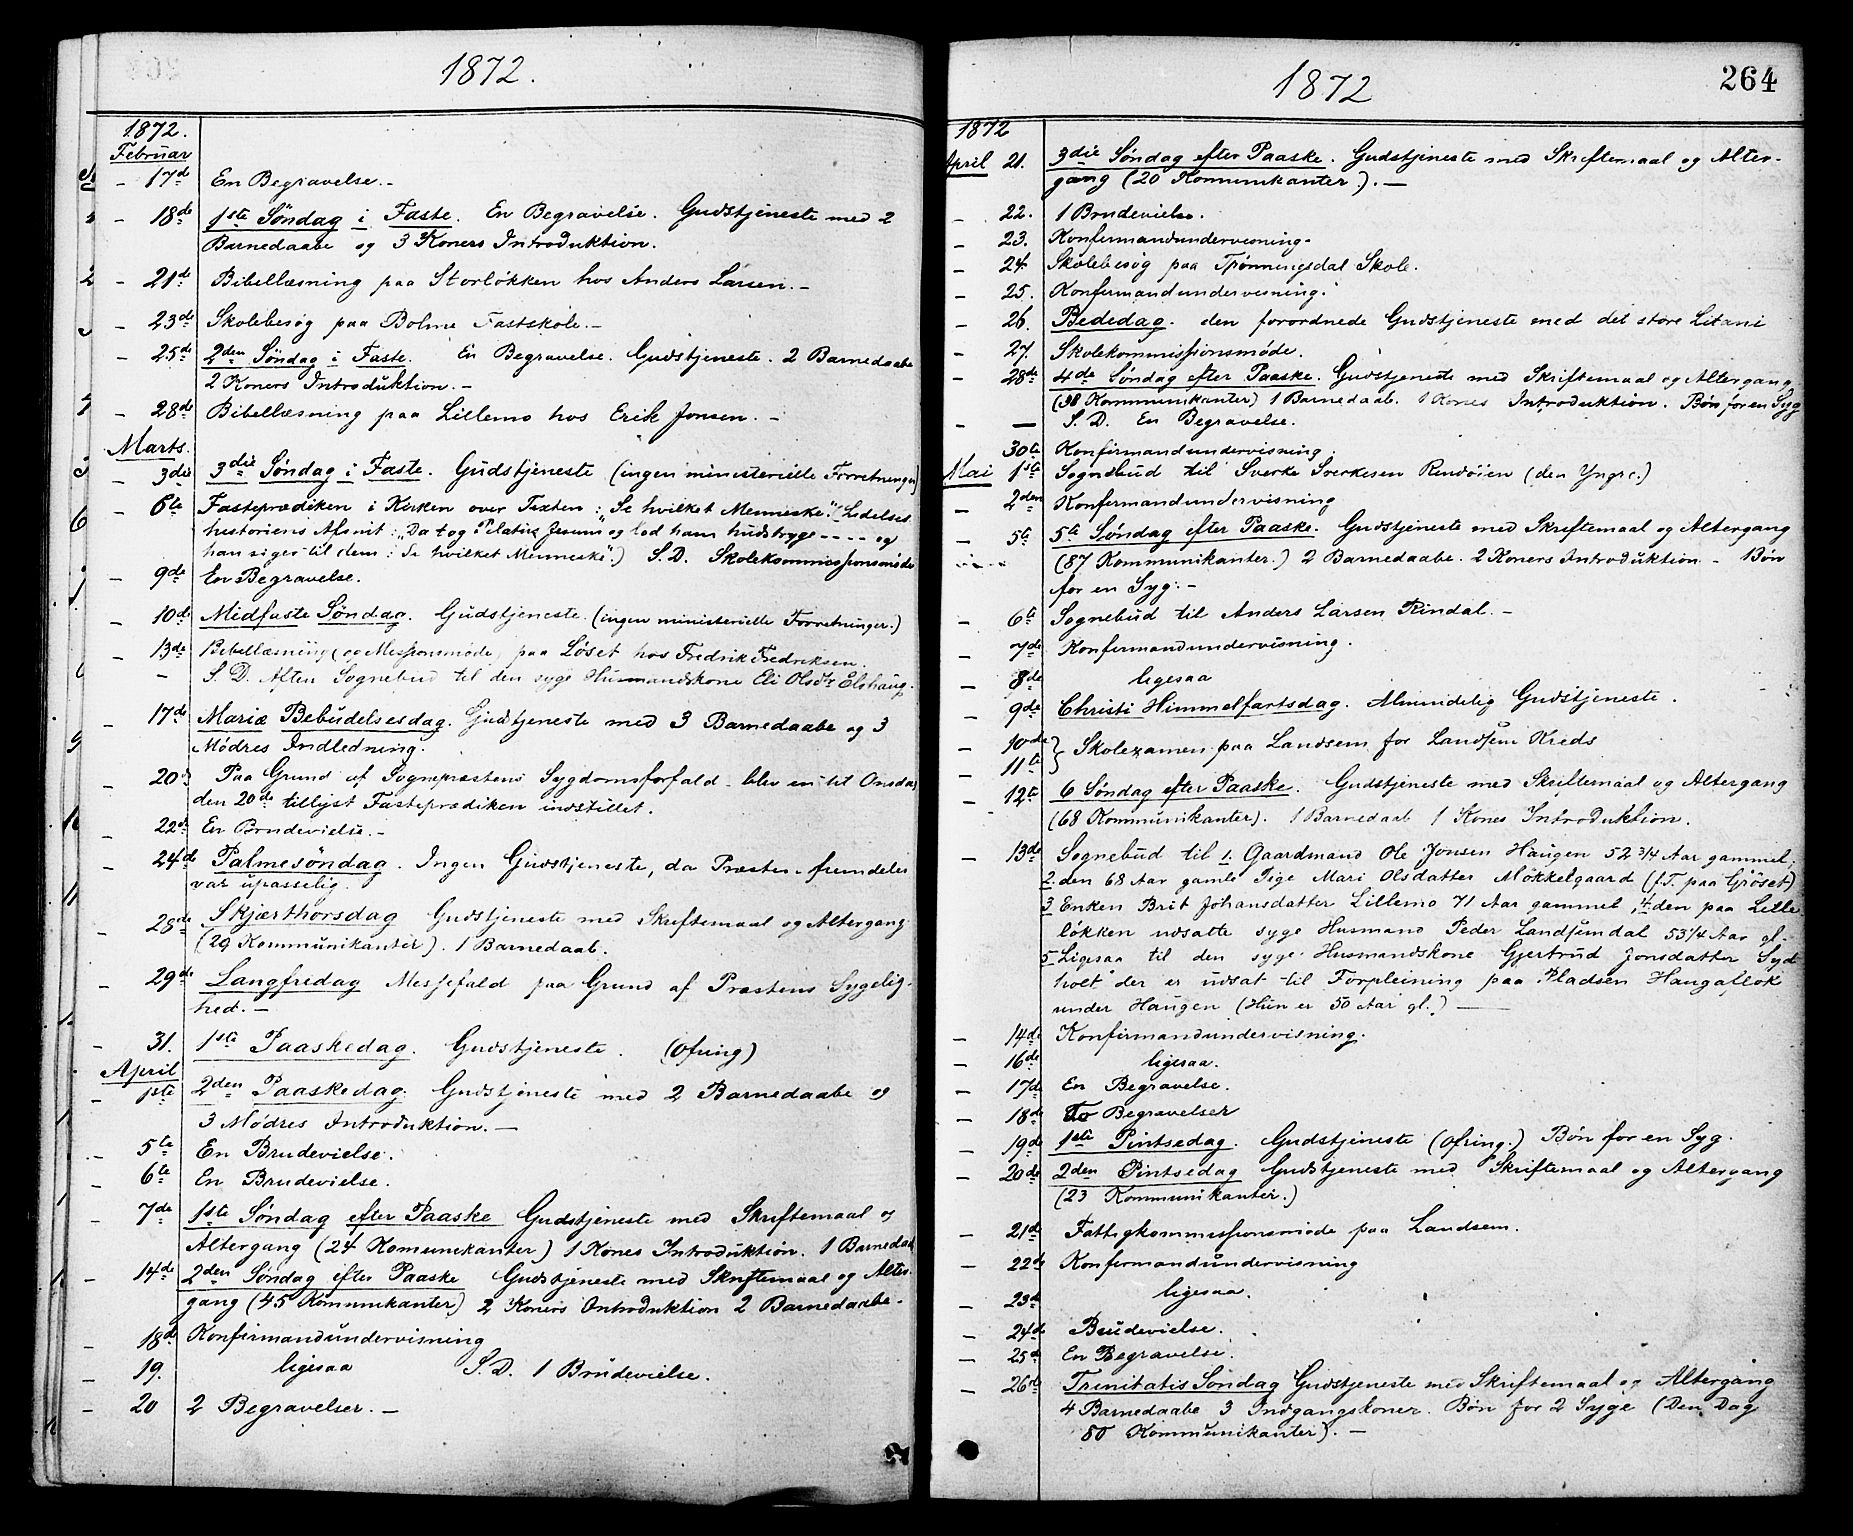 1872.
1872.
Februar
- 17de En Begravelse. -
- 18de 1ste Söndag i Faste. En Begravelse. Gudstjeneste med 2
Barnedaabe og 3 Koners Introduktion.
- 21de Bibellæsning paa Storløkken hos Anders Larsen. -
- 23de Skolebesøg paa Bolme Fastskole. -
- 25de 2den Søndag i Faste. En Begravelse. Gudstjeneste. 2 Barnedaabe
2 Koners Introduktion. -
- 28de Bibellæsning paa Lillemo hos Erik Jonsen. -
Marts.
- 3die 3die Søndag i Faste. Gudstjeneste (ingen ministerielle Forretninger)
- 6te Fasteprædiken i Kirken over Texten: "Se hvilket Menneske." (Lidelses
historiens Afsnit: "Da tog Pilatus Jesum og lod ham hudstryge ---- og
han siger til dem: Se hvilket Menneske".) S.D. Skolekommissionsmøde
- 9de En Begravelse.
- 10de Midfaste Søndag. Gudstjeneste. (ingen ministerielle Forretninger.)
- 13de Bibellæsning (og Missionsmøde) paa Løset hos Fredrik Fredriksen.
- S.D. Aften Sognebud til den syge Husmandskone Eli Olsdtr Elshaug.
- 17de Mariæ Bebudelsesdag. Gudstjeneste med 3 Barnedaabe og 3
Mødres Indledning.
- 20de Paa Grund af Sognepræstens Sygdomsforfald blev en til Onsdag
den 20de tillyst Fasteprædiken indstillet.
- 22de En Brudevielse. -
- 24de Palmesøndag. Ingen Gudstjeneste, da Præsten fremdeles
var upasselig.
- 28de Skjærthorsdag Gudstjeneste med Skriftemaal og Altergang
(29 Kommunikanter). 1 Barnedaab.
- 29de Langfredag Messefald paa Grund af Præstens Sygelig-
hed. -
- 31. 1ste Paaskedag. Gudstjeneste. (Ofring)
April
- 1ste 2den Paaskedag. Gudstjeneste med 2 Barnedaabe og
3 Mødres Introduktion. -
- 5te En Brudevielse.
- 6te En Brudevielse.
- 7de 1ste Søndag efter Paaske Gudstjeneste med Skriftemaal og
Altergang (24 Komunikanter) 1 Kones Introduktion. 1 Barnedaab
- 14de 2den Søndag efter Paaske Gudstjeneste med Skriftemaal og Alter-
gang (45 Kommunikanter) 2 Koners Introduktion 2 Barnedaabe -
- 18de Konfirmandundervisning
- 19. ligesaa S.D. 1 Brudevielse.
- 20 2 Begravelser. -
1872
264
1872
April 21. 3die Søndag efter Paaske. Gudstjeneste med Skriftemaal og Alter-
gang (20 Kommunikanter). -
- 22. 1 Brudevielse.
- 23. Konfirmandundervisning -
- 24. Skolebesøg paa Trønningsdal Skole.
- 25. Konfirmandundervisning.
- 26. Bededag. den forordnede Gudstjeneste med det store Litani
- 27. Skolekommissionsmøde.
- 28de 4de Søndag efter Paaske. Gudstjeneste med Skriftemaal og Altergang
(38 Kommunikanter) 1 Barnedaab. 1 Kones Introduktion. Bøn for en Syg
- - S.D. En Begravelse.
30te Konfirmandundervisning.
Mai 1ste Sognebud til Sverke Sverkesen Rindøien (den Yngre.)
- 2den Konfirmandundervisning
- 5te 5te Søndag efter Paaske. Gudstjeneste med Skriftemaal og Altergang
(87 Kommunikanter.) 2 Barnedaabe. 2 Koners Introduktion - Bøn
for en Syg. -
- 6te Sognebud til Anders Larsen Rindal. -
- 7de Konfirmandundervisning.
- 8de ligesaa
- 9de Christi Himmelfartsdag. Almindelig Gudstjeneste.
- 10de } Skolexamen paa Landsem for Landsem Kreds
- 11te
- 12te 6 Søndag efter Paaske. Gudstjeneste med Skriftemaal og Altergang
(68 Kommunikanter). 1 Barnedaab 1 Kones Introduktion.
- 13de Sognebud til 1. Gaardmand Ole Jonsen Haugen 52 3/4 Aar gammel;
2. den 68 Aar gamle Pige Mari Olsdatter Møkkelgaard (f.T. paa Grøset)
3 Enken Brit Johansdatter Lillemo 71 Aar gammel, 4. den paa Lille
løkken udsatte syge Husmand Peder Landsemdal 53 1/4 Aar gl.
5 Ligesaa til den syge Husmandskone Gjertrud Jonsdatter Syd
holt der er udsat til Forpleining paa Pladsen Haugaløk
under Haugen (Hun er 50 Aar gl.) -
- 14de Konfirmandundervisning.
- 16de ligesaa.
- 17de En Begravelse.
- 18de To Begravelser
- 19de 1ste Pintsedag. Gudstjeneste (Ofring.) Bøn for en Syg.
- 20de 2den Pintsedag Gudstjeneste med Skriftemaal og Altergang
(23 Kommunikanter.)
- 21de Fattigkommissionsmøde paa Landsem.
- 22de Konfirmandundervisning
- 23de ligesaa.
- 24de Brudevielse.
- 25de En Begravelse.
- 26de Trinitatis Søndag Gudstjeneste med Skriftemaal og Altergang
4 Barnedaabe 3 Indgangskoner. Bøn for 2 Syge (Den Dag
80 Kommunikanter). -